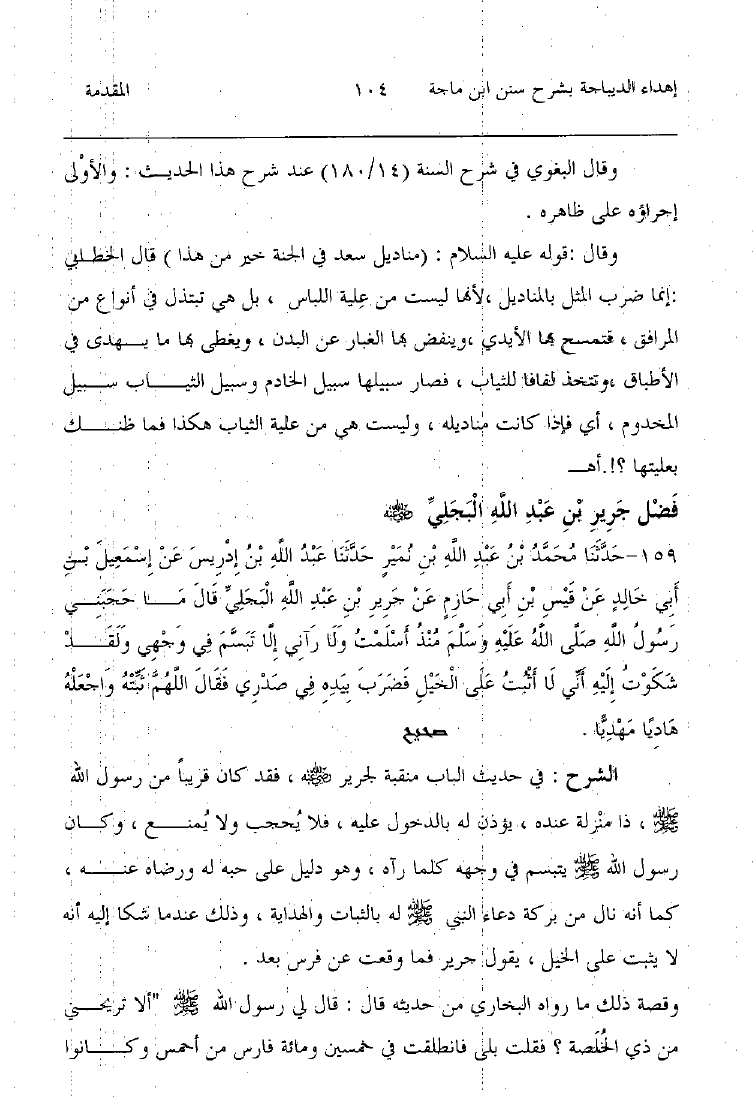 إهداء الديباجة بشرح سنن ابن ماجة ١٠٤ المقدمة
وقال البغوي في شرح السنة (١٨٠/١٤) عند شرح هذا الحديث : والأوْلى
إجراؤه على ظاهره .
وقال :قوله عليه السلام : (مناديل سعد في الجنة خير من هذا ) قال الخطابي
:إنما ضرب المثل بالمناديل ،لأنها ليست من عِلية اللباس ، بل هي تبتذل في أنواع من
المرافق ، فتمسح بها الأيدي ،وينفض بها الغبار عن البدن ، ويغطى بها ما يهدى في
الأطباق ،وتتخذ لفافا للثياب ، فصار سبيلها سبيل الخادم وسبيل الثياب سبيل
المخدوم ، أي فإذا كانت مناديله ، وليست هي من علية الثياب هكذا فما ظنك
بعليتها ؟!.أهـ
فَضْل جَرِيرِ بْنِ عَبْدِ اللَّهِ الْبَجَلِيِّ ﷺ
١٥٩-حَدَّثَنَا مُحَمَّدُ بْنُ عَبْدِ اللَّهِ بْنِ نُمَيْرٍ حَدَّثَنَا عَبْدُ اللَّهِ بْنُ إِدْرِيسَ عَنْ إِسْمَعِيلَ بْنِ
أَبِي خَالِدٍ عَنْ قَيْسِ بْنِ أَبِي حَازِمٍ عَنْ جَرِيرِ بْنِ عَبْدِ اللَّهِ الْبَجَلِيِّ قَالَ مَا حَجَبَنِي
رَسُولُ اللَّهِ صَلَّى اللَّهُ عَلَيْهِ وَسَلَّمَ مُنْذُ أَسْلَمْتُ وَلَا رَآنِي إِلَّا تَبَسَّمَ فِي وَجْهِي وَلَقَدْ
شَكَوْتُ إِلَيْهِ أَنِّي لَا أَثْبُتُ عَلَى الْخَيْلِ فَضَرَبَ بِيَدِهِ فِي صَدْرِي فَقَالَ اللَّهُمَّ ثَبِّتْهُ وَاجْعَلْهُ
هَادِيًا مَهْدِيًّا . صحيح
الشرح : في حديث الباب منقبة لجرير رضي الله عنه ، فقد كان قريباً من رسول الله
ﷺ ، ذا منْزلة عنده ، يؤذن له بالدخول عليه ، فلا يُحجب ولا يُمنع ، وكان
رسول الله ﷺ يتبسم في وجهه كلما رآه ، وهو دليل على حبه له ورضاه عنه ،
كما أنه نال من بركة دعاء النبي ﷺ له بالثبات والهداية ، وذلك عندما شكا إليه أنه
لا يثبت على الخيل ، يقول جرير فما وقعت عن فرس بعد .
وقصة ذلك ما رواه البخاري من حديثه قال : قال لي رسول الله ﷺ "ألا تريحني
من ذي الخُلَصة ؟ فقلت بلى فانطلقت في خمسين ومائة فارس من أحمس وكانوا